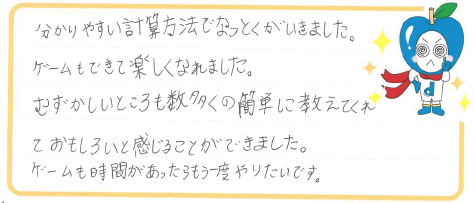 分かりやすい計算方法でなっとくがいきました。
ゲームもできて楽しくなれました。
むずかしいところも数多くの簡単に教えてくれ
ておもしろいと感じることができました。
ゲームも時間があったらもう一度やりたいです。
d